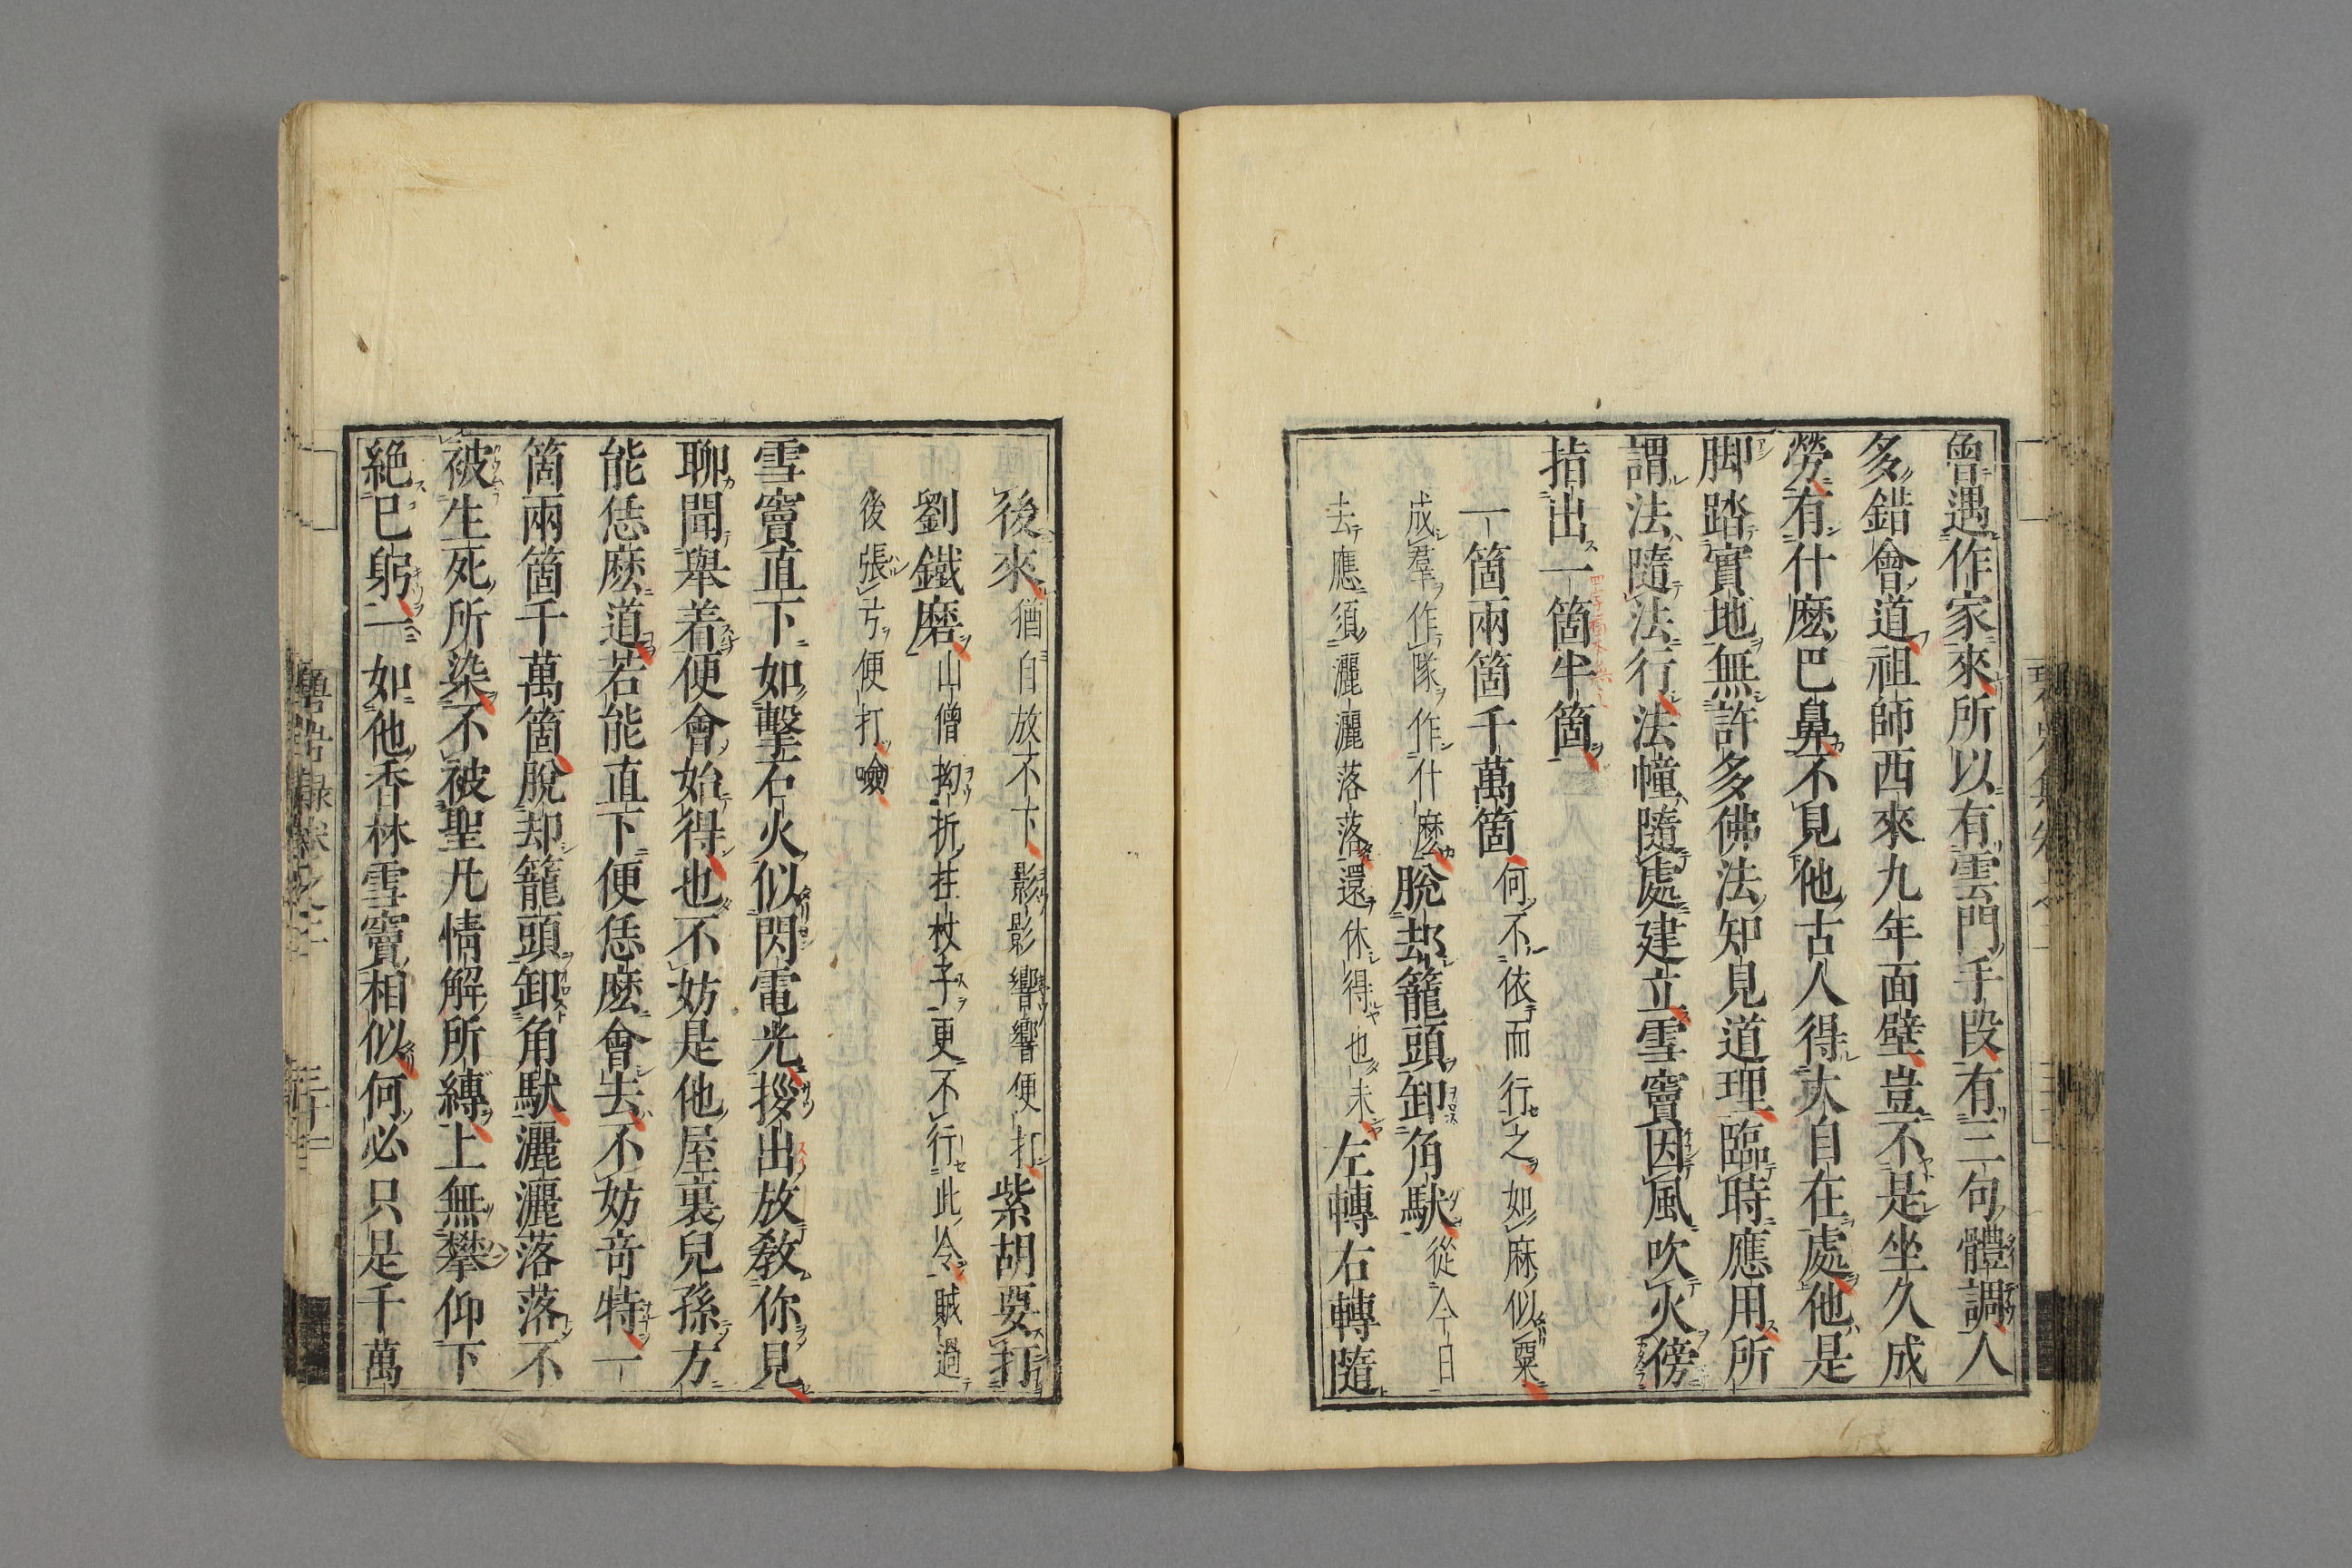 曾遇作家來所以有雲門手段有三句體調人
多錯會道祖師西來九年面壁豈不是坐久成
勞有什麽巴鼻不見他古人得大自在處他是
脚踏實地無許多佛法知見道理臨時應用所
謂法隨法行法幢隨處建立雪竇因風吹火傍
指出一箇半箇
一箇兩箇千萬箇何不依而行之如麻似粟
成羣作隊作什麽脫却籠頭卸角馱從今日
去應須灑灑落落還休得也未左轉右轉隨
後來猶自放不下影影響響便打紫胡要打
劉鐵磨山僧拗折拄杖子更不行此令賊過
後張弓便打嶮
雪竇直下如擊石火似閃電光拶出放敎你見
聊聞舉着便會始得也不妨是他屋裏兒孫方
能恁麽道若能直下便恁麽會去不妨奇特一
箇兩箇千萬箇脫却籠頭卸角馱灑灑落落不
被生死所染不被聖凡情解所縛上無攀仰下
絕已躬一如他香林雪竇相似何必只是千萬